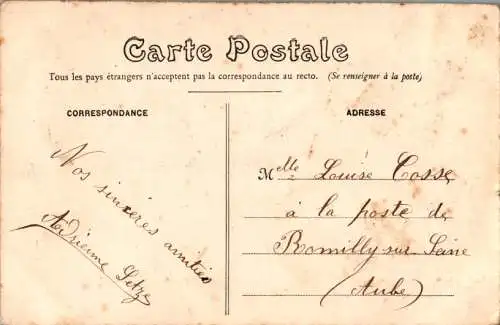 Carte Postale
Tous les pays étrangers n'acceptent pas la correspondance au recto. (Se renseigner à la poste)
CORRESPONDANCE
Nos sincères amitiés
Adrienne
ADRESSE
Melle Louise Cosse
à la poste de
Romilly-sur-Seine
(Aube)